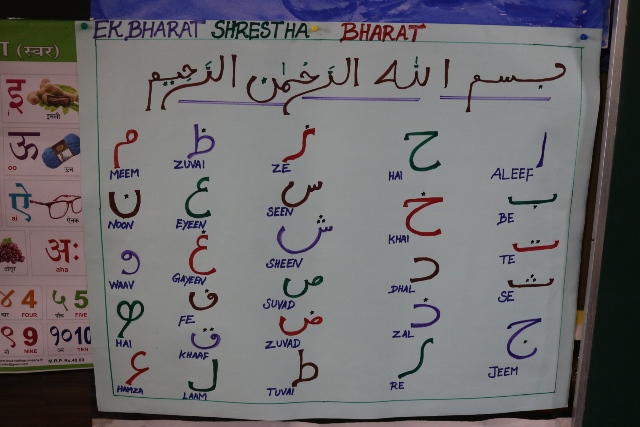 EK BHARAT SHRESTHA BHARAT
بسم الله الرحمن الرحيم
ا
ALEEF
ب
BE
ت
TE
ث
SE
ج
JEEM
ح
HAI
خ
KHAI
د
DHAL
ذ
ZAL
ر
RE
ز
ZE
س
SEEN
ش
SHEEN
ص
SUVAD
ض
ZUVAD
ط
TUVAI
ظ
ZUVAI
ع
EYEEN
غ
GAYEEN
ف
FE
ق
KHAAF
ل
LAAM
م
MEEM
ن
NOON
و
WAAV
ه
HAI
ء
HAMZA
(स्वर)
इ
i इमली
ऊ
oo ऊन
ऐ
ai ऐनक
अंगूर
अः
aha
४ 4 ५ 5
FOUR FIVE
९ 9 १० 10
NINE TEN